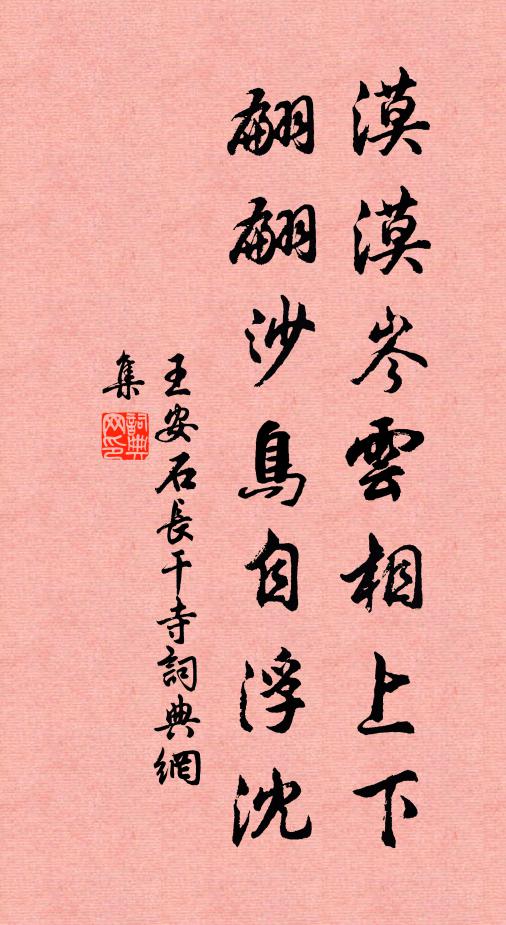 漠漠岑雲相上下
翩翩沙鳥自浮沈
王安石長干寺詞典網
集
詞典網印